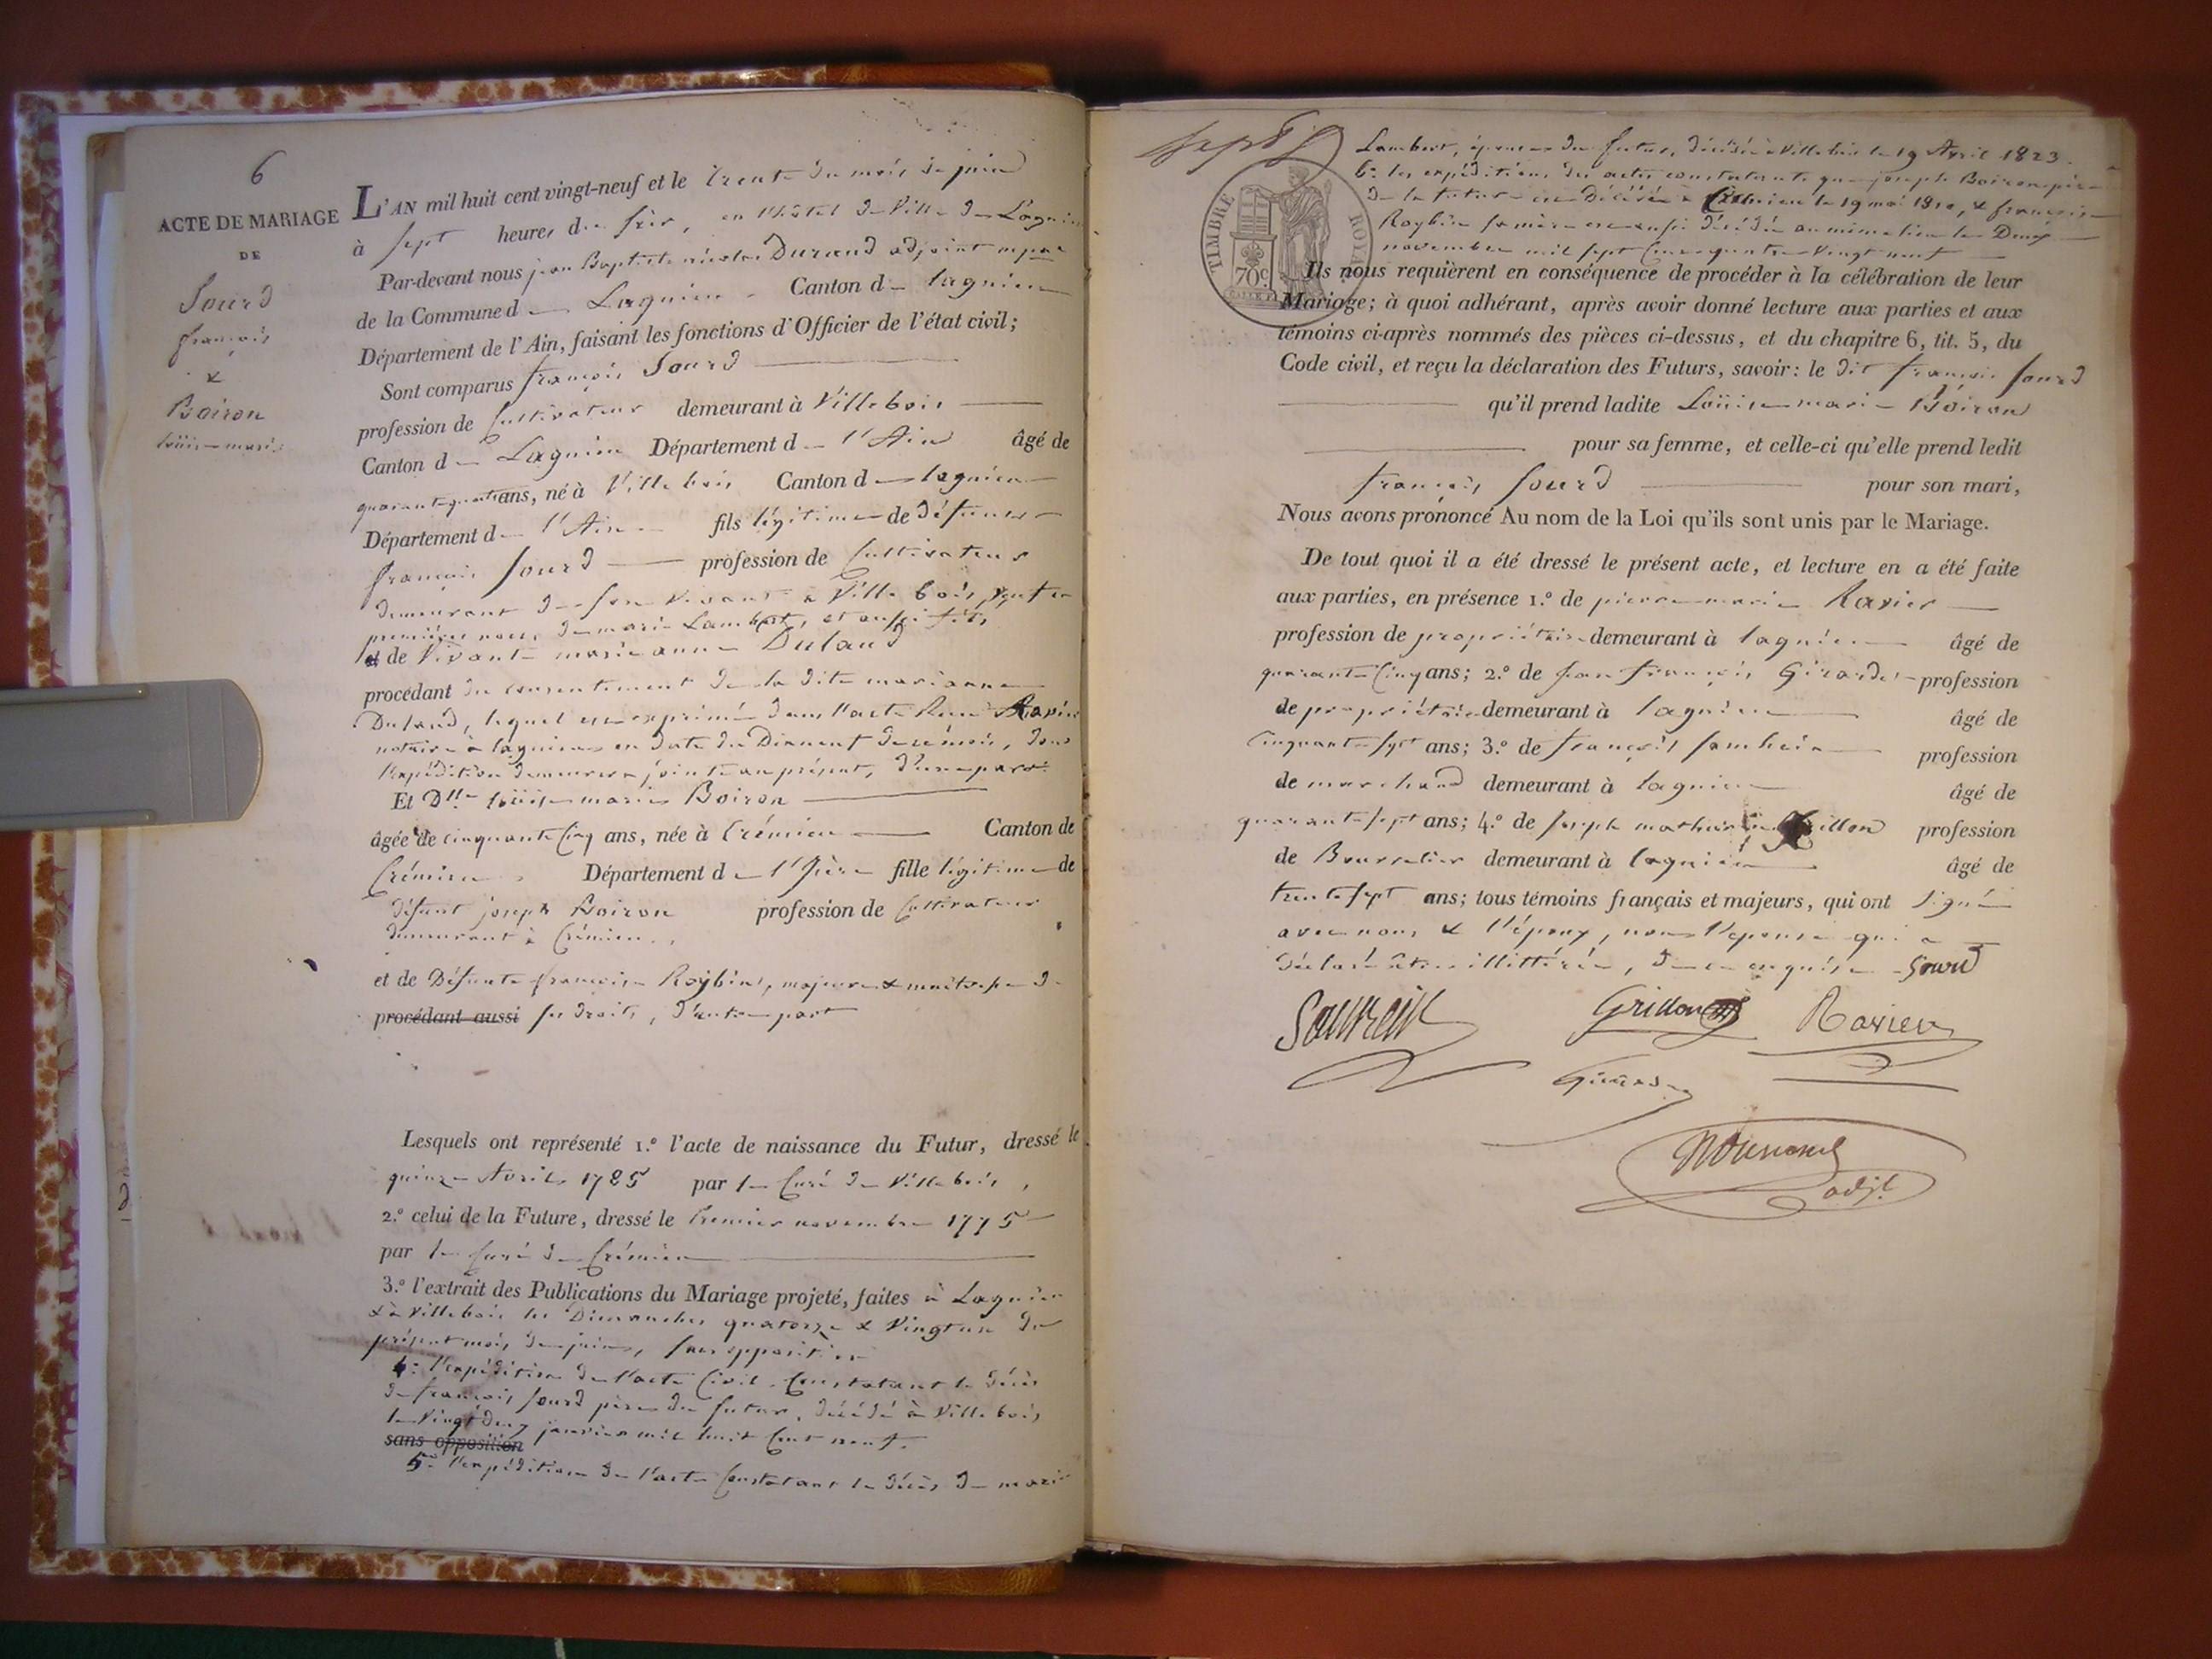 6
ACTE DE MARIAGE
DE
Sourd
françois
&
Boiron
loüise marie
L'AN mil huit cent vingt-neuf et le trente du mois de juin
à sept heures du soir, en l'hôtel de Ville de Lagnieu
Par-devant nous jean Baptiste nicolas Durand adjoint
de la Commune de Lagnieu Canton de lagnieu
Département de l'Ain, faisant les fonctions d'Officier de l'état civil;
Sont comparus françois Sourd
profession de Cultivateur demeurant à Villebois
Canton de Lagnieu Département de l'Ain âgé de
quarante quatre ans, né à Villebois Canton de lagnieu
Département de l'Ain fils légitime de défunt
françois Sourd profession de Cultivateur
demeurant de son vivant à Villebois, veuf en
premières noces de marie Lambert, et aussi fils
et de Vivante marie anne Duland
procédant du consentement de la dite marianne
Duland, lequel est exprimé dans l'acte Reçu Ravier
notaire à lagnieu en date du Dixneuf de ce mois, dont
l'expédition demeurera jointe au présent, d'une part.
Et Dlle loüise marie Boiron
âgée de cinquante Cinq ans, née à Crémieu Canton de
Crémieu Département de l'Isère fille légitime de
défunt joseph Boiron profession de Cultivateur
demeurant à Crémieu,
et de Défunte françoise Roybin, majeure & maitresse de
procédant aussi ses droits, d'autre part
Lesquels ont représenté 1.º l'acte de naissance du Futur, dressé le
quinze Avril 1785 par le Curé de Villebois,
2.º celui de la Future, dressé le premier novembre 1775
par le Curé de Crémieu
3.º l'extrait des Publications du Mariage projeté, faites à Lagnieu
& à Villebois les Dimanches quatorze & Vingt un du
présent mois de juin, sans opposition
4º l'expédition de l'acte Civil Constatant le décès
de françois Sourd père du futur, décédé à Villebois
le Vingt deux janvier mil huit Cent neuf.
sans opposition
5º l'expédition de l'acte Constatant le décès de marie
sept
Lambert, épouse du futur, décédée à Villebois le 19 Avril 1823.
6º les expéditions des actes constatant que joseph Boiron père
de la future est Décédé à Crémieu le 19 mai 1810, & françoise
Roybin sa mère est aussi décédée au même lieu le Deux
novembre mil sept Cent quatre vingt neuf
TIMBRE ROYAL
70c.
Ils nous requièrent en conséquence de procéder à la célébration de leur
Mariage; à quoi adhérant, après avoir donné lecture aux parties et aux
témoins ci-après nommés des pièces ci-dessus, et du chapitre 6, tit. 5, du
Code civil, et reçu la déclaration des Futurs, savoir: le dit françois Sourd
qu'il prend ladite Loüise marie Boiron
pour sa femme, et celle-ci qu'elle prend ledit
françois Sourd pour son mari,
Nous avons prononcé Au nom de la Loi qu'ils sont unis par le Mariage.
De tout quoi il a été dressé le présent acte, et lecture en a été faite
aux parties, en présence 1.º de pierre marie Ravier
profession de propriétaire demeurant à lagnieu âgé de
quarante Cinq ans; 2.º de jean françois Girardet profession
de propriétaire demeurant à lagnieu âgé de
Cinquante sept ans; 3.º de françois profession
de marchand demeurant à lagnieu âgé de
quarante sept ans; 4.º de joseph profession
de Bourrelier demeurant à lagnieu âgé de
trente sept ans; tous témoins français et majeurs, qui ont signé
avec nous & l'époux, non l'épouse qui a
déclaré être illittérée, de ce enquise Sourd
Grillon
Ravier
Durand
adjt